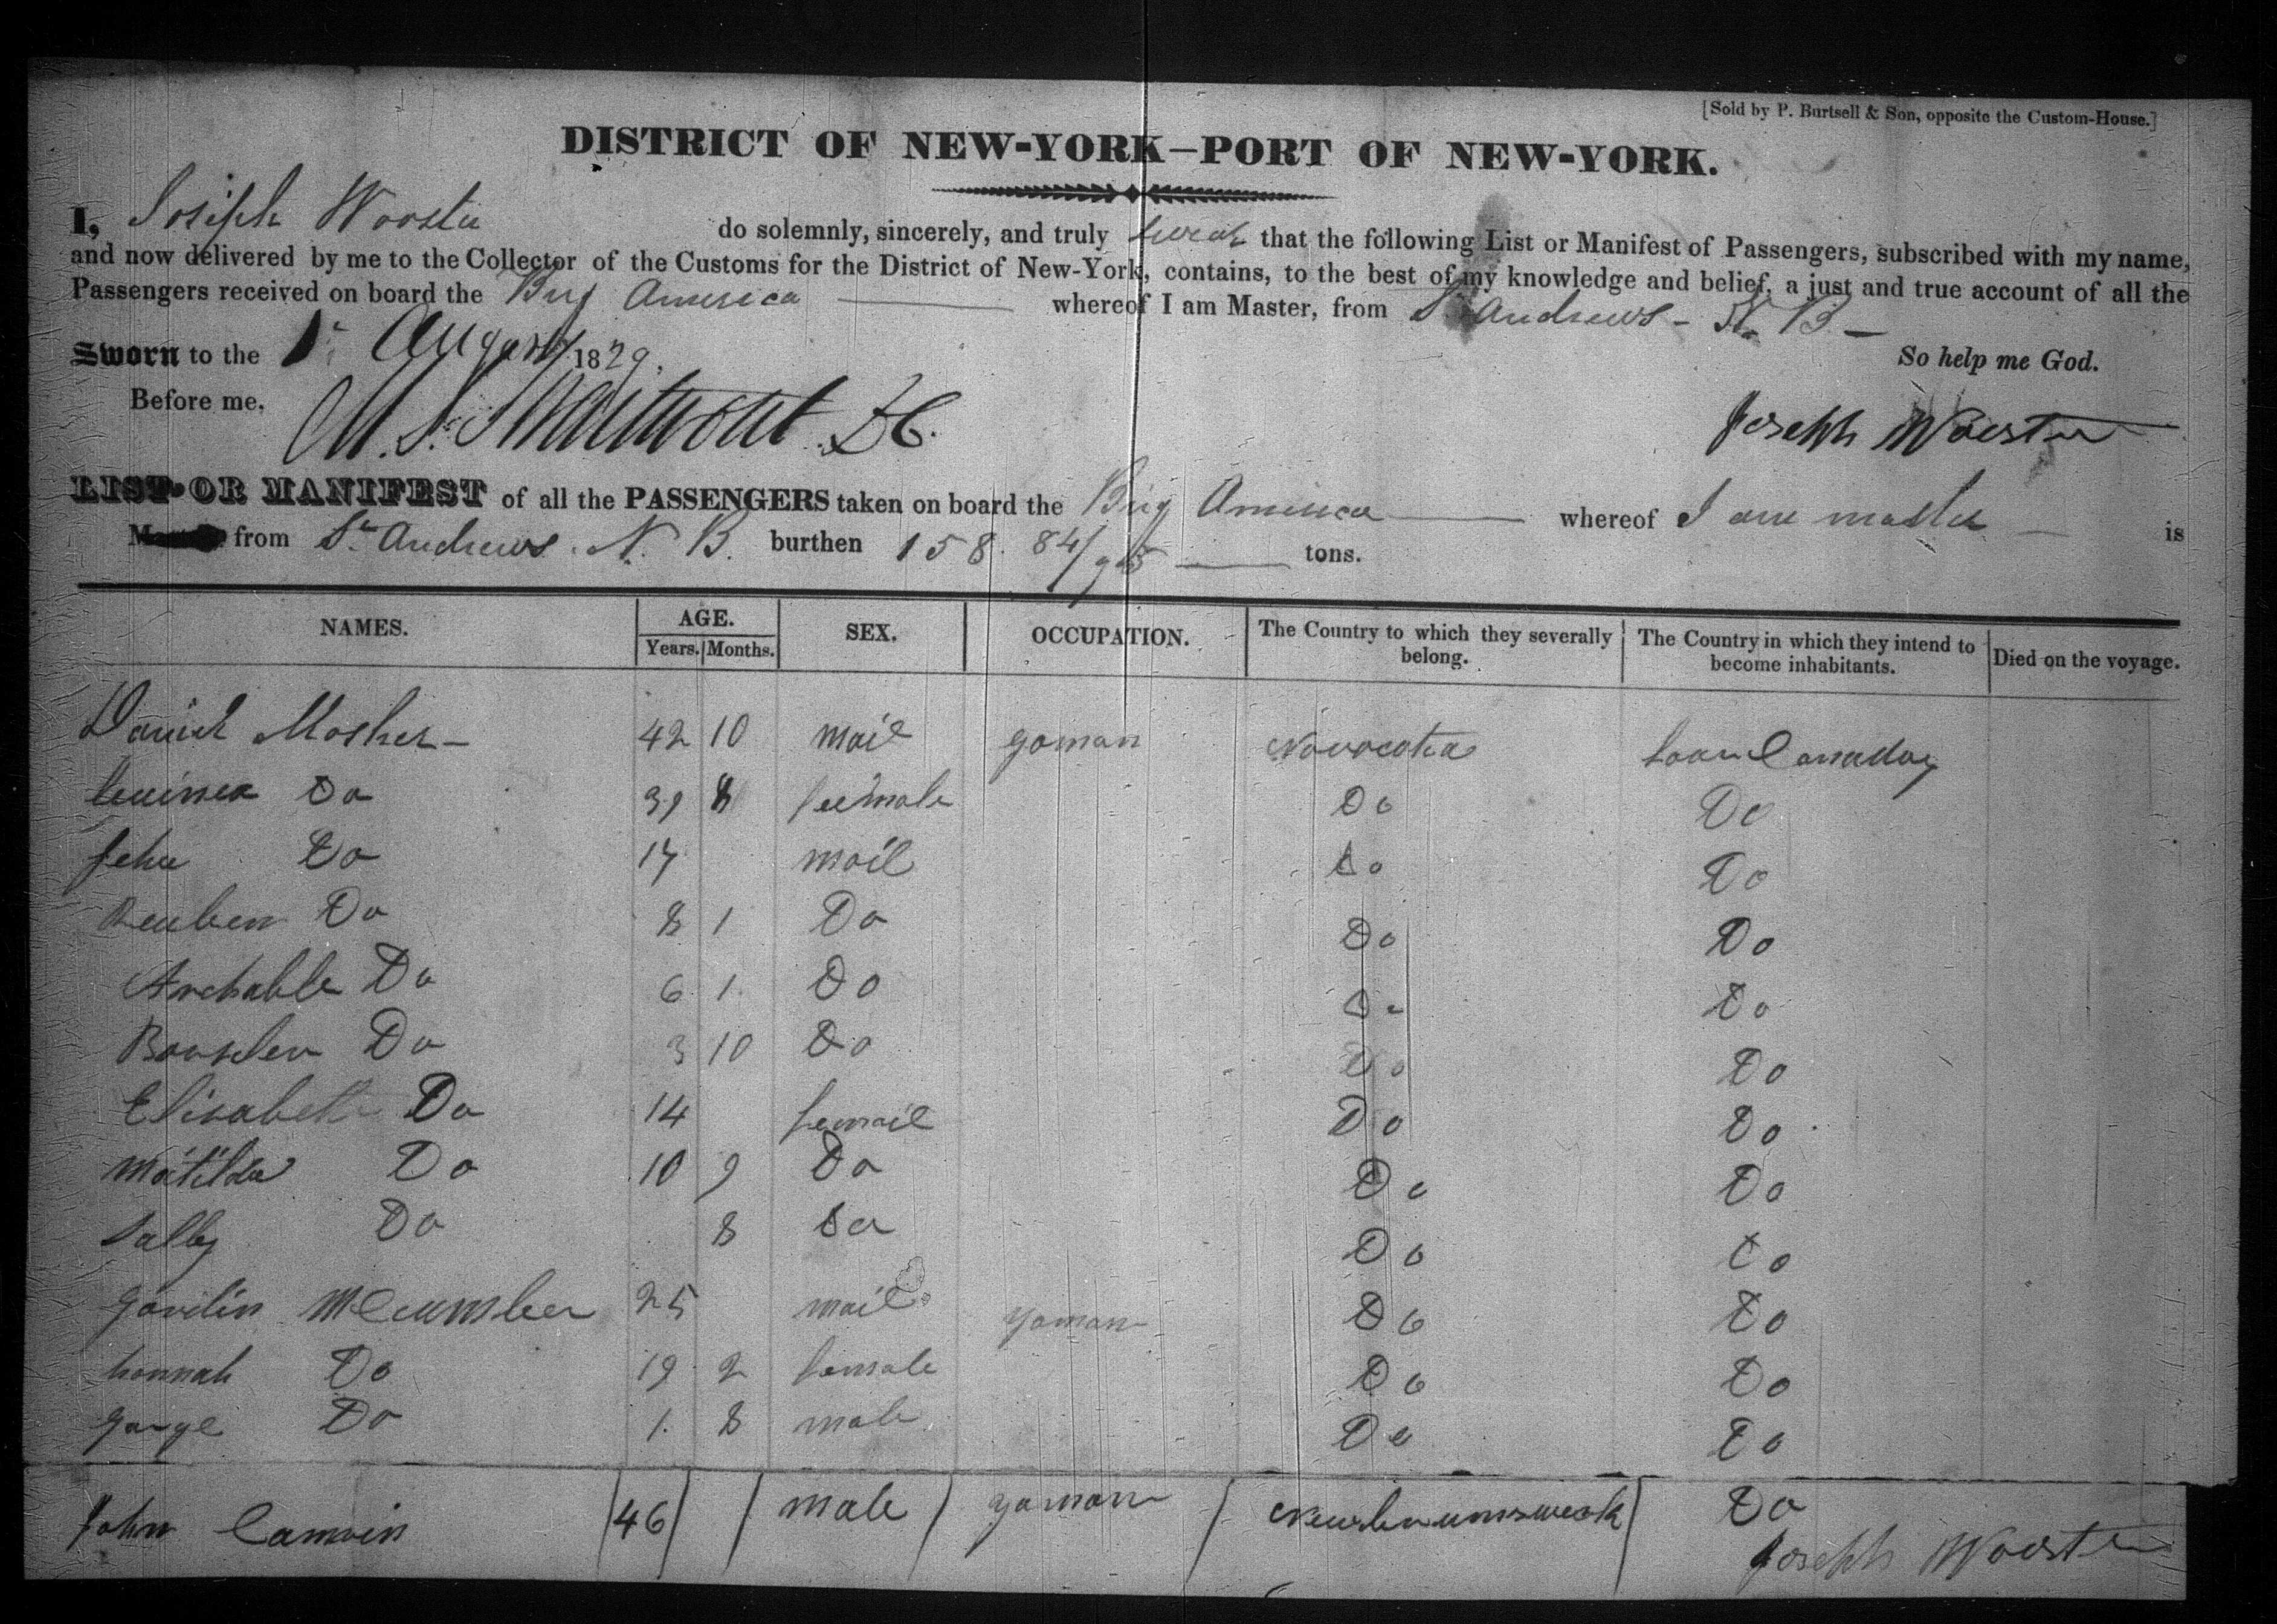 [Sold by P. Burtsell & Son, opposite the Custom-House.]
DISTRICT OF NEW-YORK—PORT OF NEW-YORK.
I, Joseph Wooster do solemnly, sincerely, and truly swear that the following List or Manifest of Passengers, subscribed with my name,
and now delivered by me to the Collector of the Customs for the District of New-York, contains, to the best of my knowledge and belief, a just and true account of all the
Passengers received on board the Brig America whereof I am Master, from St Andrews - N. B. -
Sworn to the 1st August 1829.
So help me God.
Before me,
Joseph Wooster
LIST OR MANIFEST of all the PASSENGERS taken on board the Brig America whereof I am master is
from St Andrews. N. B. burthen 158. 84/95 tons.
NAMES. AGE. Years. Months. SEX. OCCUPATION. The Country to which they severally belong. The Country in which they intend to become inhabitants. Died on the voyage.
Daniel Mosher 42 10 mail yoman Novocotia Canaday
Do 39 8 feemale Do Do
John Do 17 mail Do Do
Reuben Do 8 1 Do Do Do
Archable Do 6 1 Do Do Do
Do 3 10 Do Do Do
Elisabeth Do 14 femail Do Do
Matilda Do 10 9 Do Do Do
Sally Do 8 Do Do Do
McCumber 25 mail yoman Do Do
hannah Do 19 2 female Do Do
Gorge Do 1 8 male Do Do
John 46 male yoman Newbrunsweek Do
Joseph Wooster